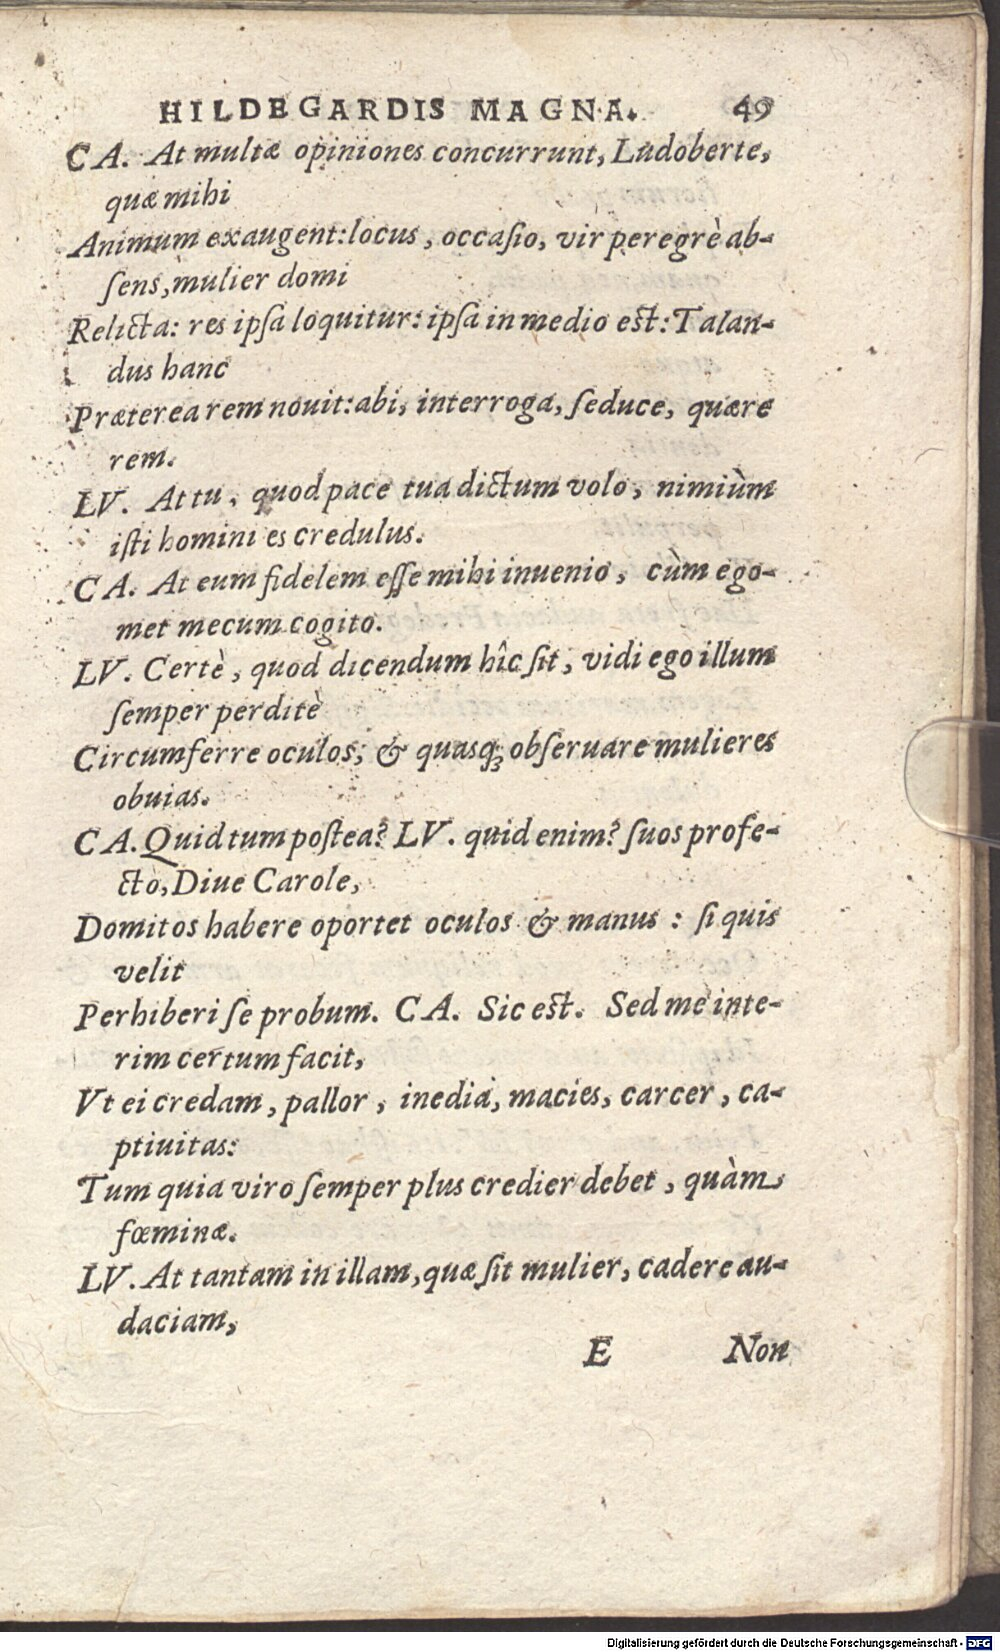 HILDEGARDIS MAGNA. 49
CA. At multæ opiniones concurrunt, Ludoberte,
quæ mihi
Animum exaugent: locus, occaſio, vir peregrè ab-
ſens, mulier domi
Relicta: res ipſa loquitur: ipſa in medio est: Talan-
dus hanc
Præterea rem nouit: abi, interroga, ſeduce, quære
rem.
LV. At tu, quod pace tua dictum volo, nimiùm
iſti homini es credulus.
CA. At eum fidelem eſſe mihi inuenio, cùm ego-
met mecum cogito.
LV. Certè, quod dicendum hîc ſit, vidi ego illum
ſemper perditè
Circumferre oculos; & quasq́; obſeruare mulieres
obuias.
CA. Quid tum poſtea? LV. quid enim? ſuos profe-
ctò, Diue Carole,
Domitos habere oportet oculos & manus: ſi quis
velit
Perhiberi ſe probum. CA. Sic est. Sed me inte-
rim certum facit,
Vt ei credam, pallor, inedia, macies, carcer, ca-
ptiuitas:
Tum quia viro ſemper plus credier debet, quàm
fœminæ.
LV. At tantam in illam, quæ ſit mulier, cadere au-
daciam,
E Non
Digitalisierung gefördert durch die Deutsche Forschungsgemeinschaft - DFG